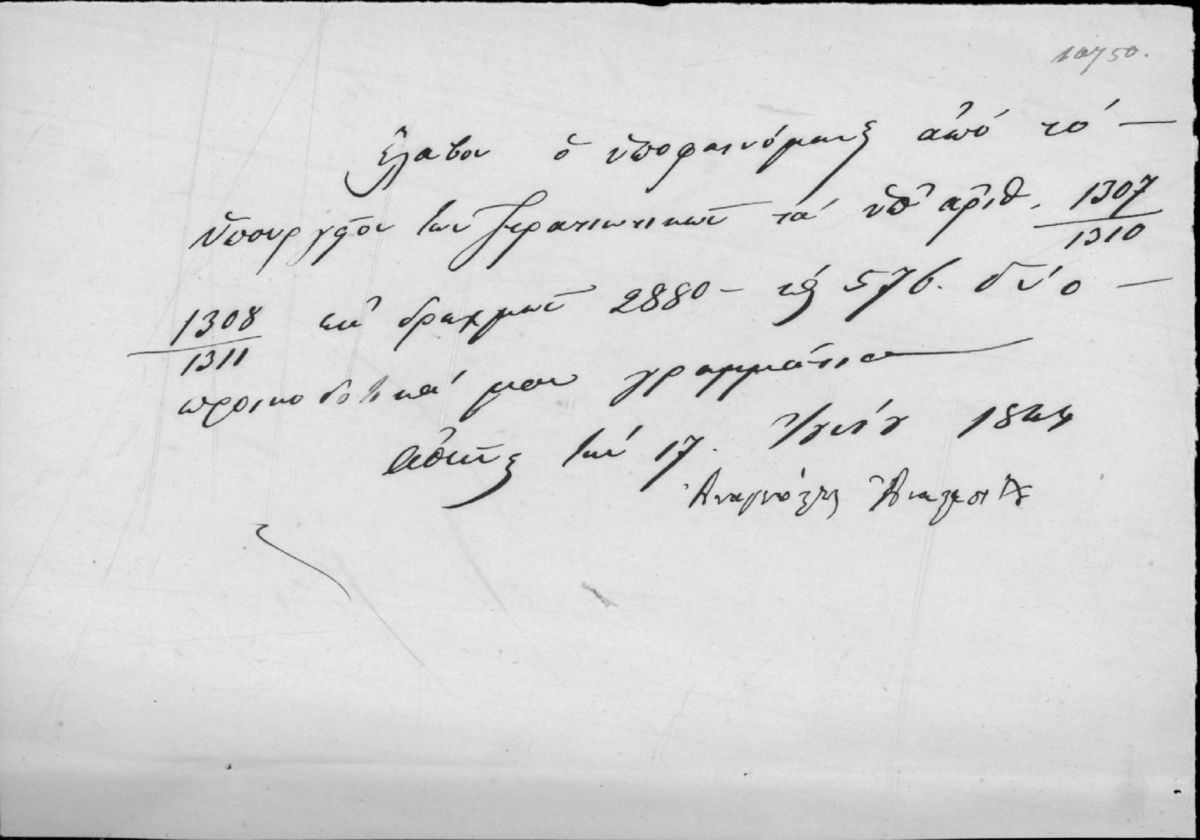 10750.
Ἔλαβον ὁ ὑποφαινόμενος ἀπό τό —
Ὑπουργεῖον τῶν Στρατιωτικῶν τά ὑπ' ἀριθ. 1307/1310
1308/1311 ἐκ δραχμῶν 2880 — τῆς 576. δύο —
προικοδοτικά μου γραμμάτια
Ἀθῆναις τήν 17. 1844
Ἀναγνώστης